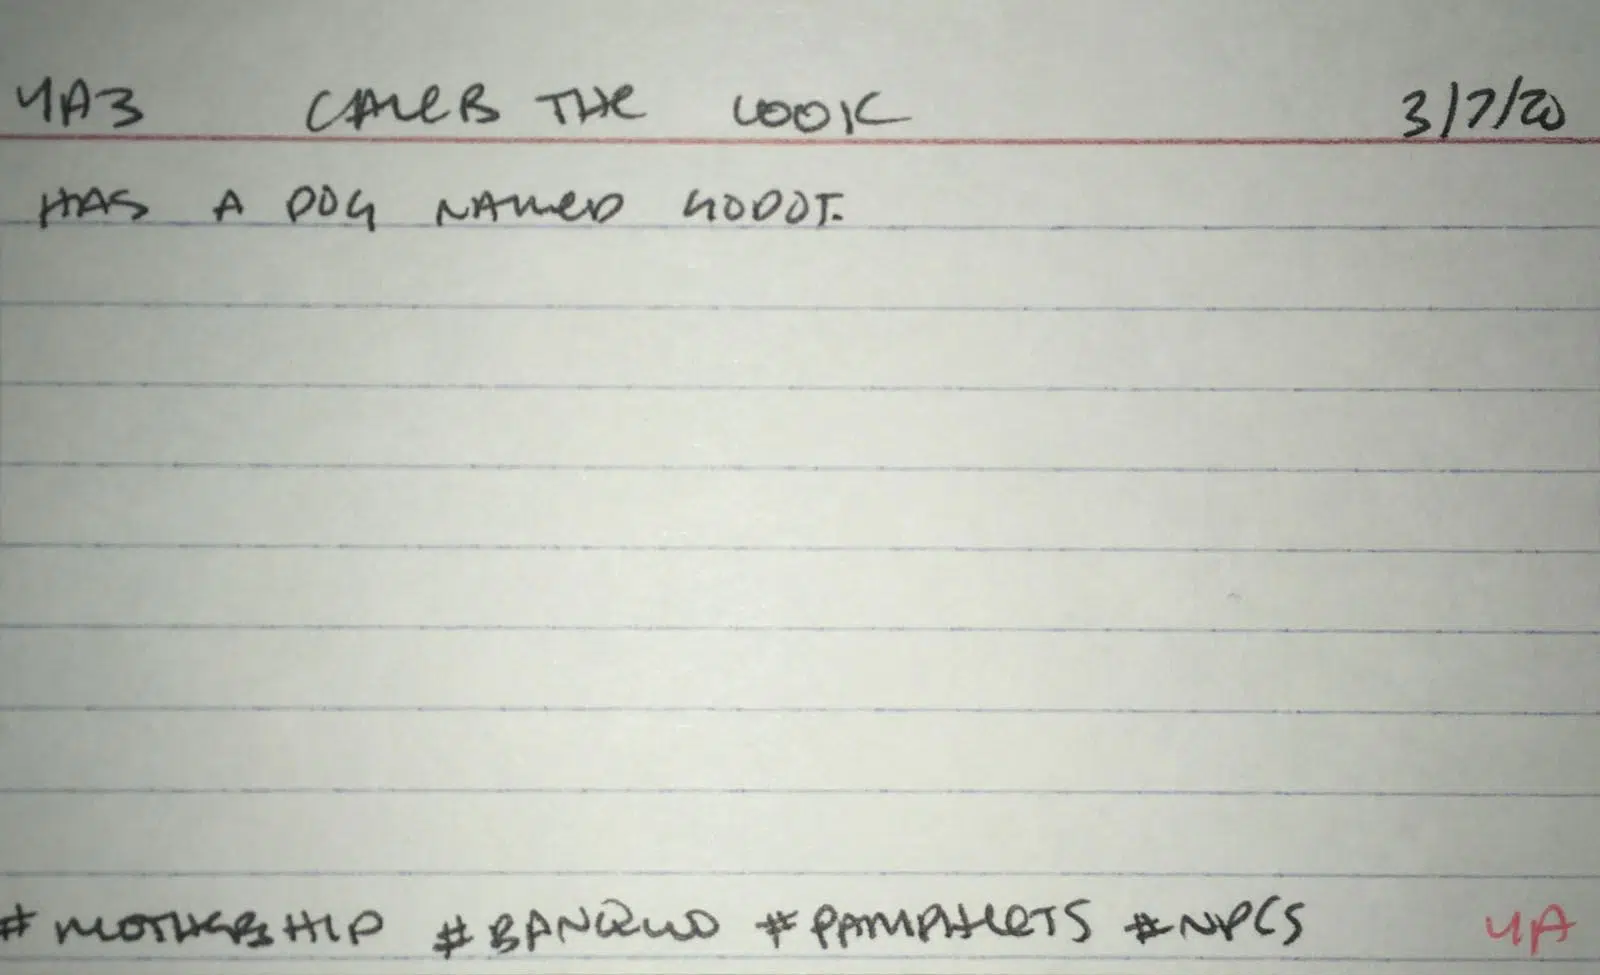 4A3 CALEB THE COOK 3/7/20
HAS A DOG NAMED GODOT.
#MOTHERSHIP #BANQUO #PAMPHLETS #NPCS 4A